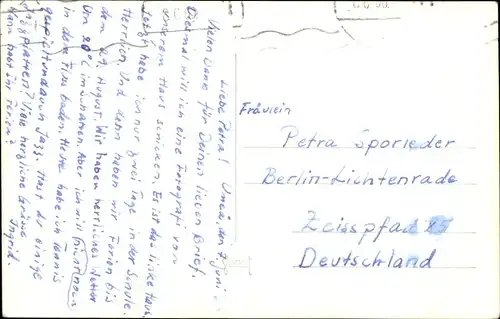 Liebe Petra! Umeå, den 7 Juni
Vielen Dank für Deinen lieben Brief.
Diesmal will ich eine Fotografi von
unserem Haus schicken. Es ist das linke Haus.
Jetzt habe ich nur zwei Tage in der Schule.
Herrlich! Und dann haben wir Ferien bis
den 29. August. Wir haben herrliches Wetter
Um 20°C im Schatten. Aber ich will nicht noch
in dem Fluss baden. Heute habe ich Tennis
gespielt und auch Jazz. Hast du einige
Jazzplatten? Viele herzliche Grüsse
Wann habt ihr Ferien? Ingrid.
Fräulein
Petra Sporleder
Berlin-Lichtenrade
Zeisspfad 25
Deutschland